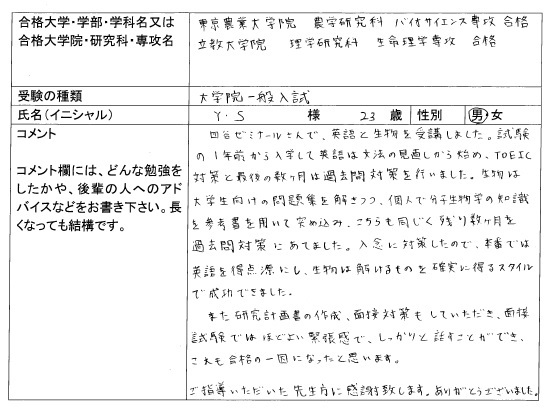 合格大学・学部・学科名又は
合格大学院・研究科・専攻名
東京農業大学院 農学研究科 バイオサイエンス専攻 合格
立教大学院 理学研究科 生命理学専攻 合格
受験の種類
大学院一般入試
氏名(イニシャル)
Y・S 様 23 歳 性別 男・女
コメント
コメント欄には、どんな勉強を
したかや、後輩の人へのアド
バイスなどをお書き下さい。長
くなっても結構です。
四谷ゼミナールさんで、英語と生物を受講しました。試験
の1年前から入学して英語は文法の見直しから始め、TOEIC
対策と最後の数ヶ月は過去問対策を行いました。生物は
大学生向けの問題集を解きつつ、個人で分子生物学の知識
を参考書を用いて突め込み、こちらも同じく残り数ヶ月を
過去問対策にあてました。入念に対策したので、本番では
英語を得点源にし、生物は解けるものを確実に得るスタイル
で成功できました。
また研究計画書の作成、面接対策もしていただき、面接
試験ではほどよい緊張感で、しっかりと話すことができ、
これも合格の一因になったと思います。
ご指導いただいた先生方に感謝致します。ありがとうございました。